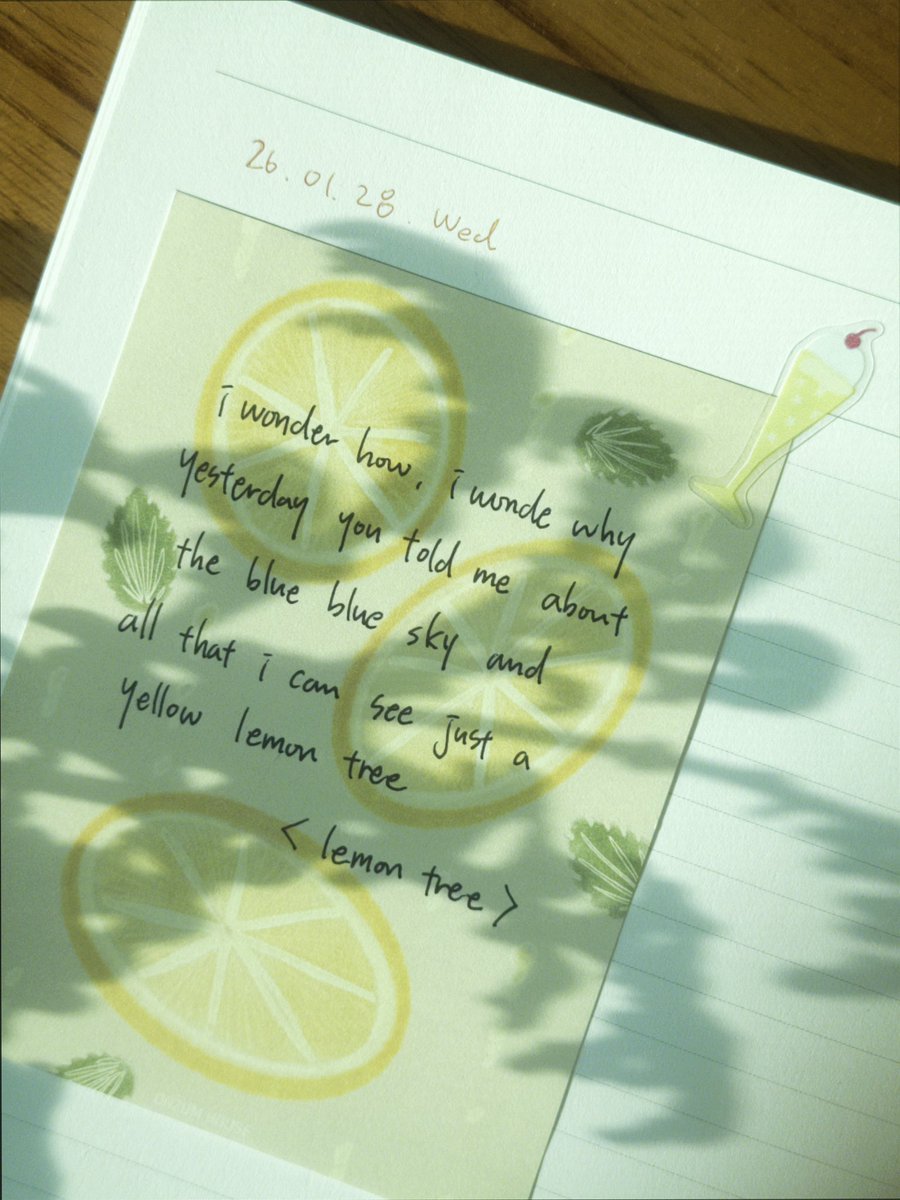 26.01.28. Wed
i wonder how, i wonde why
yesterday you told me about
the blue blue sky and
all that i can see just a
yellow lemon tree
< lemon tree >